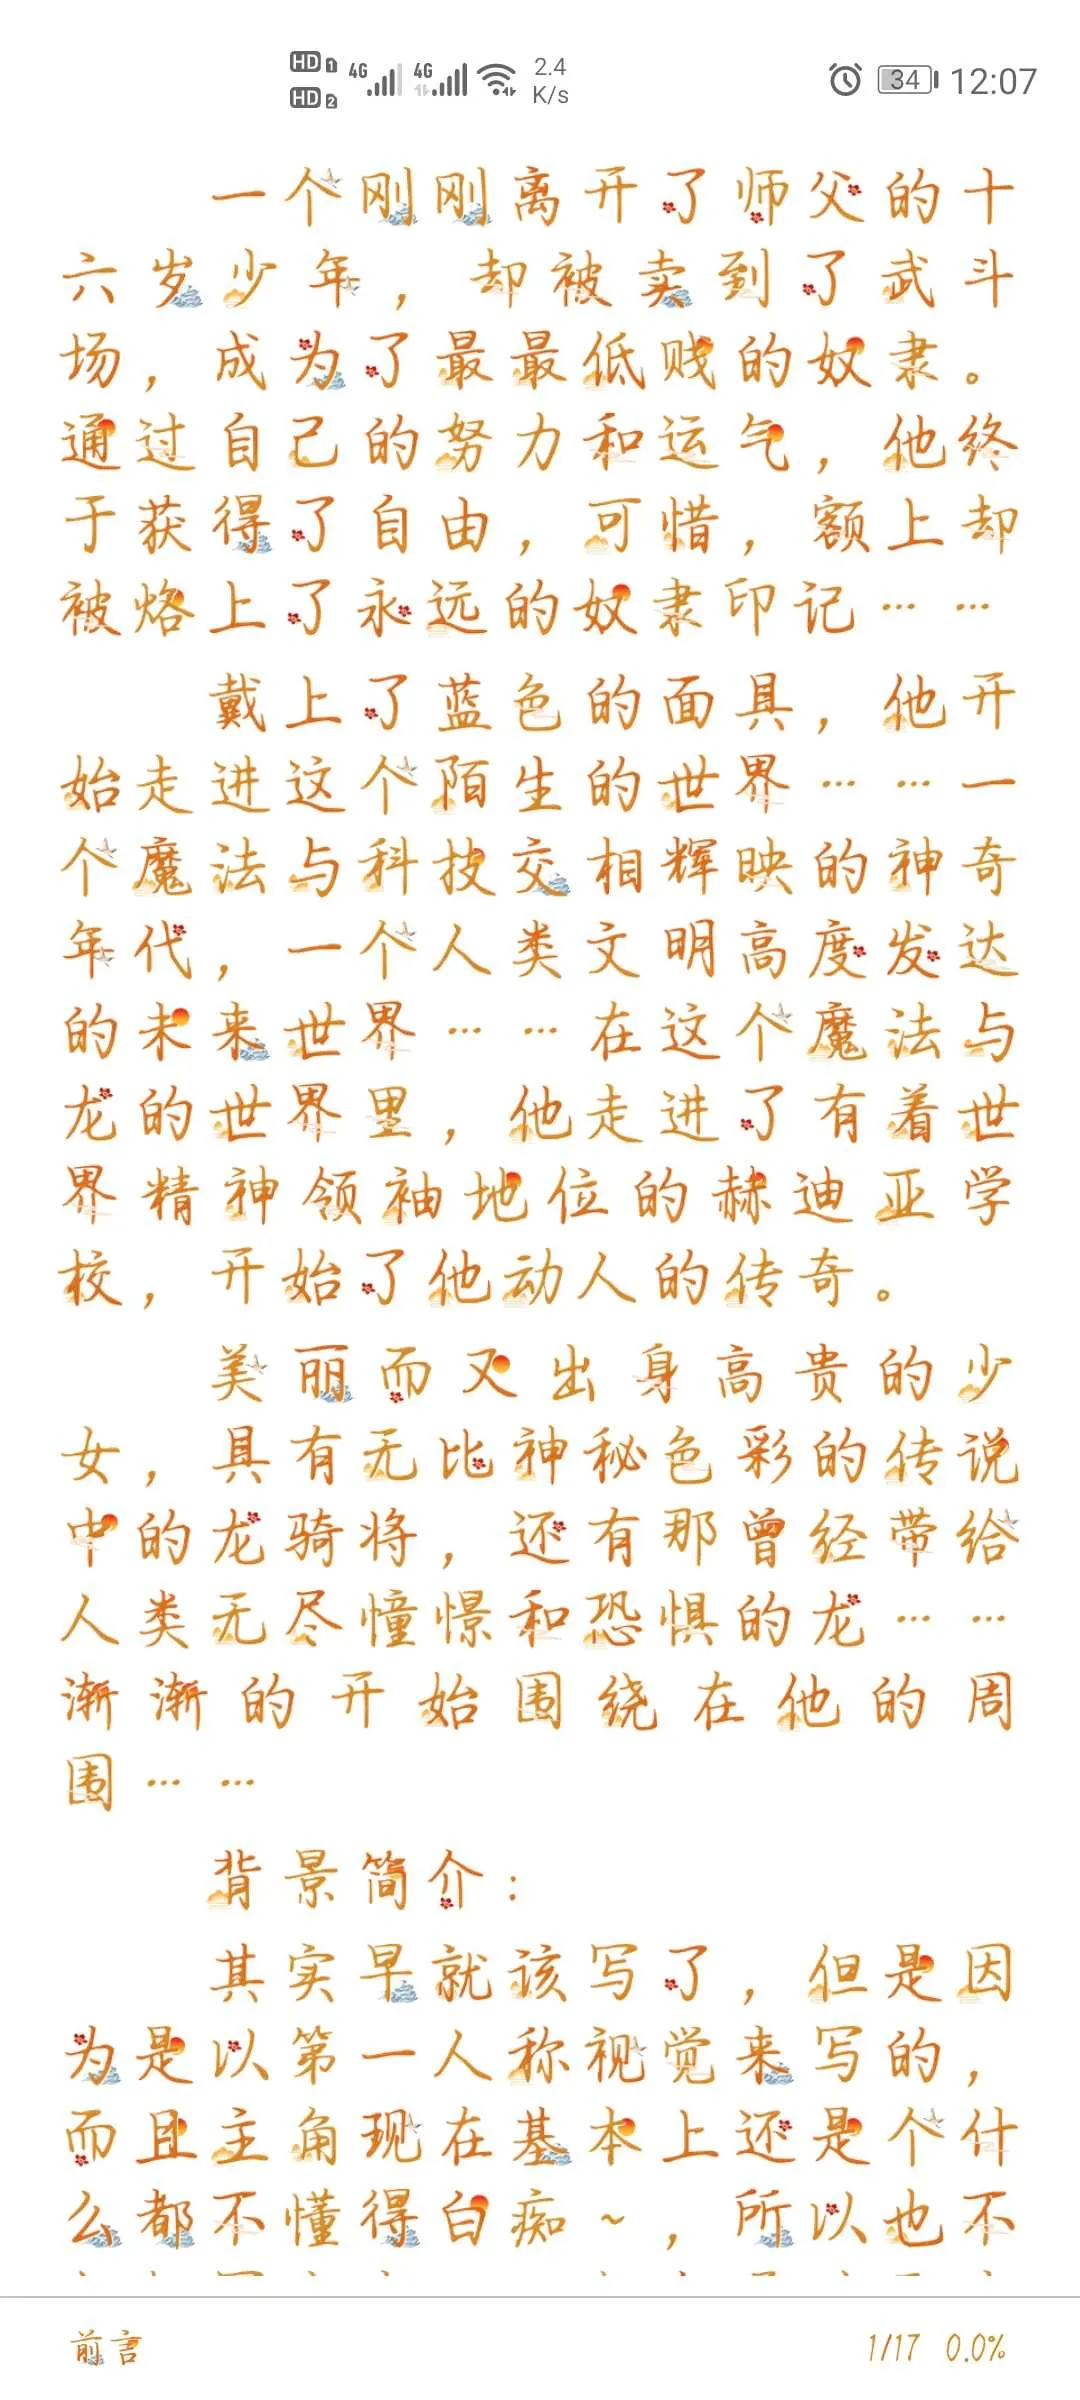 HD 1 4G 4G 2.4 34 12:07
HD 2 K/s
一个刚刚离开了师父的十
六岁少年，却被卖到了武斗
场，成为了最最低贱的奴隶。
通过自己的努力和运气，他终
于获得了自由，可惜，额上却
被烙上了永远的奴隶印记……
戴上了蓝色的面具，他开
始走进这个陌生的世界……一
个魔法与科技交相辉映的神奇
年代，一个人类文明高度发达
的未来世界……在这个魔法与
龙的世界里，他走进了有着世
界精神领袖地位的赫迪亚学
校，开始了他动人的传奇。
美丽而又出身高贵的少
女，具有无比神秘色彩的传说
中的龙骑将，还有那曾经带给
人类无尽憧憬和恐惧的龙……
渐渐的开始围绕在他的周
围……
背景简介：
其实早就该写了，但是因
为是以第一人称视觉来写的，
而且主角现在基本上还是个什
么都不懂得白痴~，所以也不
前言 1/17 0.0%